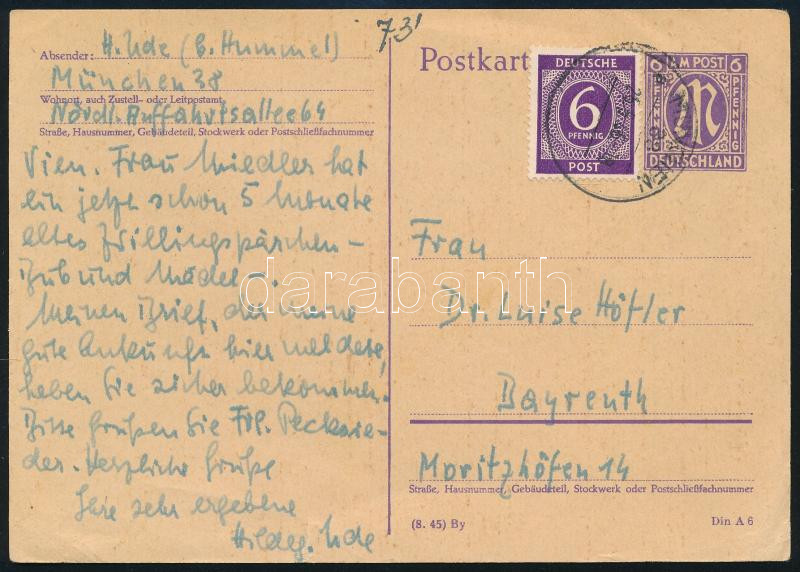 731
Absender: H. Ude (b. Hummel)
München 38
Wohnort, auch Zustell- oder Leitpostamt
Nördl. Auffahrtsallee 64
Straße, Hausnummer, Gebäudeteil, Stockwerk oder Postschließfachnummer
Frau Miedler hat
ein jetzt schon 5 Monate
altes Zwillingspärchen -
Bub und Mädel -.
Meinen Brief, der meine
gute Ankunft hier meldete,
haben Sie sicher bekommen.
Bitte grüßen Sie Frl.
der. Herzliche Grüße
Ihre sehr ergebene
Hildeg. Ude
Postkarte
DEUTSCHE
6
PFENNIG
POST
6 AM POST 6
PFENNIG PFENNIG
M
DEUTSCHLAND
MÜNCHEN
Frau
Dr. Luise Höfler
Bayreuth
Moritzhöfen 14
Straße, Hausnummer, Gebäudeteil, Stockwerk oder Postschließfachnummer
(8. 45) By
Din A 6
darabanth